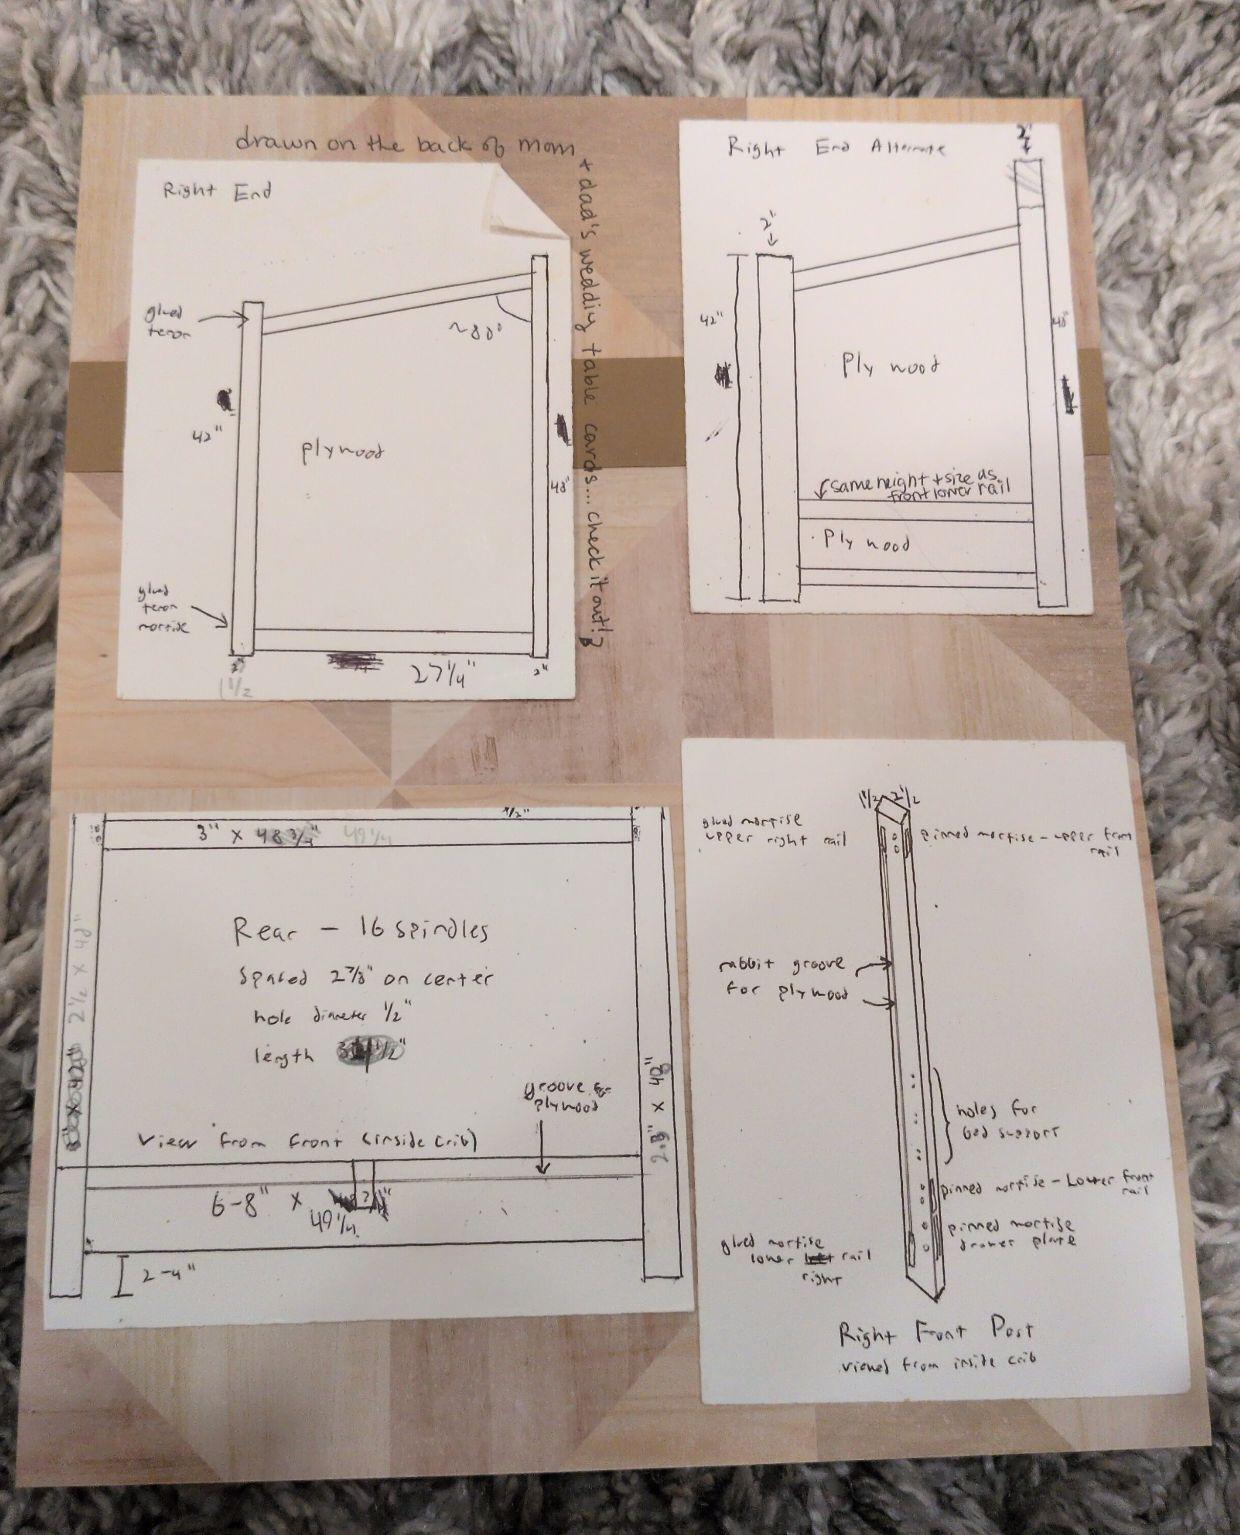 drawn on the back of mom
+ dad's wedding table cards... check it out!
Right End
glued
tenon
~80°
42"
plywood
48"
glued
tenon
mortise
27 1/4"
2"
1 1/2
Right End Alternate
2"
2"
42"
48"
Plywood
same height + size as
front lower rail
Plywood
3" x 48 3/4" 49 1/4
2 1/2 x 48"
Rear - 16 spindles
Spaced 2 7/8" on center
hole diameter 1/2"
length
groove for
plywood
View from front (inside crib)
6-8" x
49 1/4
2-4"
1 1/2 2 1/2
glued mortise
upper right rail
pinned mortise - upper front
rail
rabbit groove
for plywood
holes for
bed support
pinned mortise - Lower front
rail
pinned mortise
drawer plate
glued mortise
lower rail
right
Right Front Post
viewed from inside crib